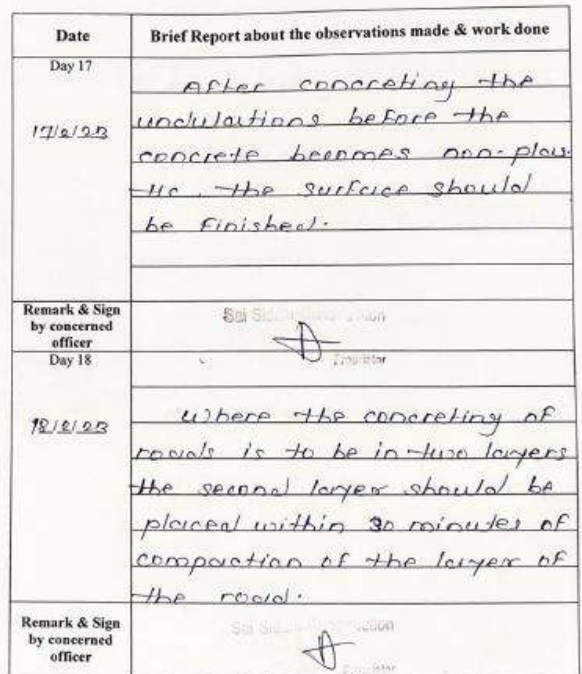 Date Brief Report about the observations made & work done
Day 17
17/2/23
After concreting the
undulations before the
concrete becomes non-plas-
tic, the surface should
be finished.
Remark & Sign
by concerned
officer
Sai
Proprietor
Day 18
18/2/23
Where the concreting of
roads is to be in two layers
the second layer should be
placed within 30 minutes of
compaction of the layer of
the road.
Remark & Sign
by concerned
officer
Sai
Proprietor